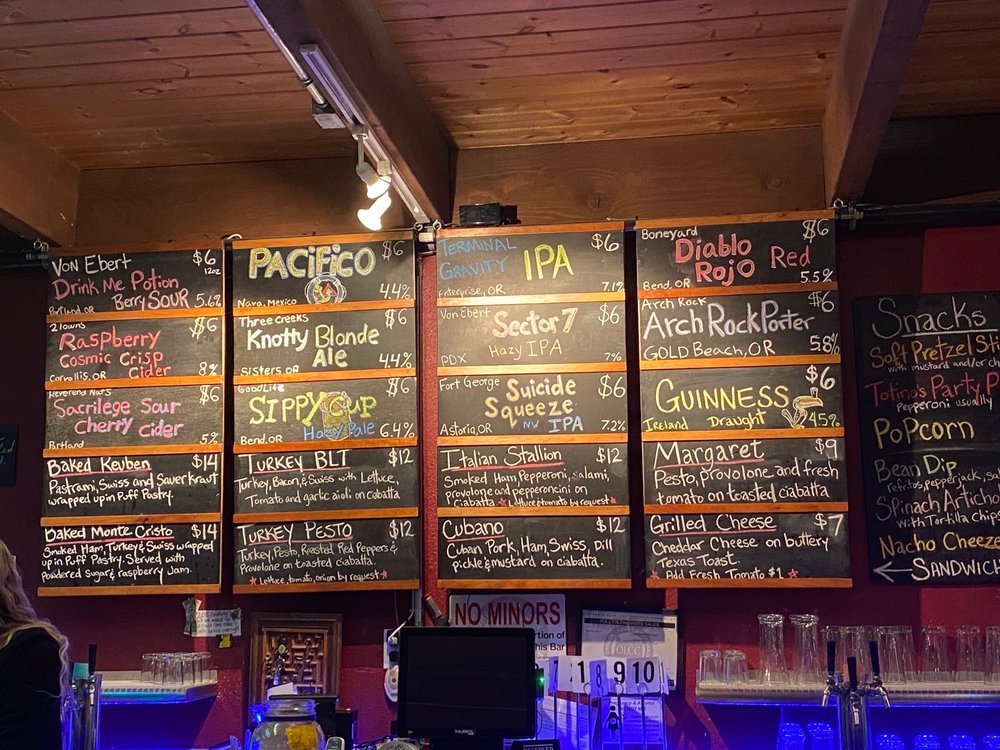 Von Ebert $6
12oz
Drink Me Potion
Berry Sour 5.6%
Portland, OR
2 Towns $6
Raspberry
Cosmic Crisp
Cider
Corvallis, OR 8%
Reverend Nat's $6
Sacrilege Sour
Cherry Cider
Portland 5%
Baked Reuben $14
Pastrami, Swiss and Sauerkraut
wrapped up in Puff Pastry.
Baked Monte Cristo $14
Smoked Ham, Turkey & Swiss wrapped
up in Puff Pastry. Served with
Powdered Sugar & raspberry Jam.
PACIFICO $6
Nava, Mexico 4.4%
Three Creeks $6
Knotty Blonde
Ale
Sisters, OR 4.4%
GoodLife $6
SIPPY CUP
Hazy Pale
Bend, OR 6.4%
Turkey BLT $12
Turkey, Bacon, & Swiss with Lettuce,
Tomato and garlic aioli on ciabatta
Turkey Pesto $12
Turkey, Pesto, Roasted Red Peppers &
Provolone on toasted ciabatta.
Lettuce, tomato, onion by request
TERMINAL GRAVITY IPA $6
Enterprise, OR 7.1%
Von Ebert $6
Sector 7
Hazy IPA
PDX 7%
Fort George $6
Suicide
Squeeze
NW IPA
Astoria, OR 7.2%
Italian Stallion $12
Smoked Ham, Pepperoni, salami,
provolone and pepperoncini on
ciabatta. Lettuce & tomato by request
Cubano $12
Cuban Pork, Ham, Swiss, Dill
pickle & mustard on ciabatta.
Boneyard $6
Diablo
Rojo Red
Bend, OR 5.5%
Arch Rock $6
Arch Rock Porter
GOLD Beach, OR 5.8%
$6
GUINNESS
Ireland Draught 4.5%
Margaret $9
Pesto, provolone and fresh
tomato on toasted ciabatta
Grilled Cheese $7
Cheddar Cheese on buttery
Texas Toast.
Add Fresh Tomato $1
Snacks
Soft Pretzel Sti
with mustard and/or ch
Totino's Party P
Pepperoni usually
PoPcorn
Bean Dip
Refried beans, pepperjack, sal
Spinach Articho
with Tortilla chips
Nacho Cheeze
← SANDWICH
NO MINORS
ortion of
his Bar
OLCC
7 1 8 9 10